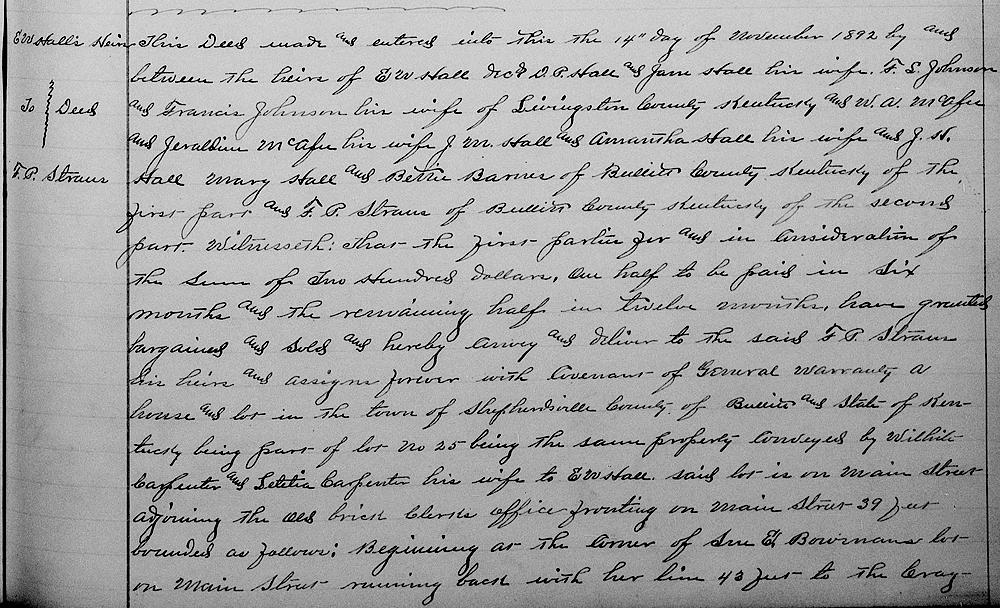 E W Hall's Heirs
To } Deed
F. P. Straus
This Deed made and entered into this the 14" day of November 1892 by and
between the heirs of E W Hall decd D. P. Hall and Jane Hall his wife. F. S. Johnson
and Francis Johnson his wife of Livingston County Kentucky and W. A. McAfee
and Jeraldine McAfee his wife J. M. Hall and Amantha Hall his wife and J. H.
Hall Mary Hall and Bettie Barnes of Bullitt County Kentucky of the
first part and F. P. Straus of Bullitt County Kentucky of the second
part. Witnesseth: that the first parties for and in consideration of
the sum of Two Hundred dollars, one half to be paid in six
months and the remaining half in twelve months, have granted
bargained and sold and hereby convey and deliver to the said F. P. Straus
his heirs and assigns forever with Covenant of General Warranty a
house and lot in the town of Shepherdsville County of Bullitt and State of Ken-
tucky being part of lot no 25 being the same property conveyed by Wilhite
Carpenter and Letitia Carpenter his wife to E W Hall. said lot is on Main Street
adjoining the old brick Clerks office fronting on Main Street 39 feet
bounded as follows: Beginning at the corner of E. Bowmans lot
on Main Street running back with her line 43 feet to the Crag-